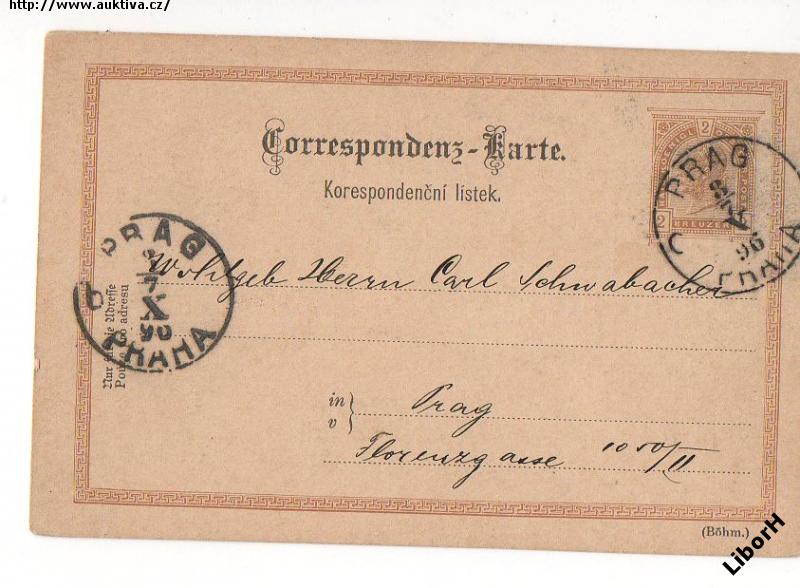 http://www.auktiva.cz/
Correspondenz-Karte.
Korespondenční lístek.
2
2
KREUZER
PRAG
X
96
PRAHA
PRAG
7
X
96
PRAHA
Nur für die Adresse
Pouze pro adresu
Wohlgeb Herrn Carl Schwabacher
in
v
Prag
Florenzgasse 1050/II
(Böhm.)
LiborH